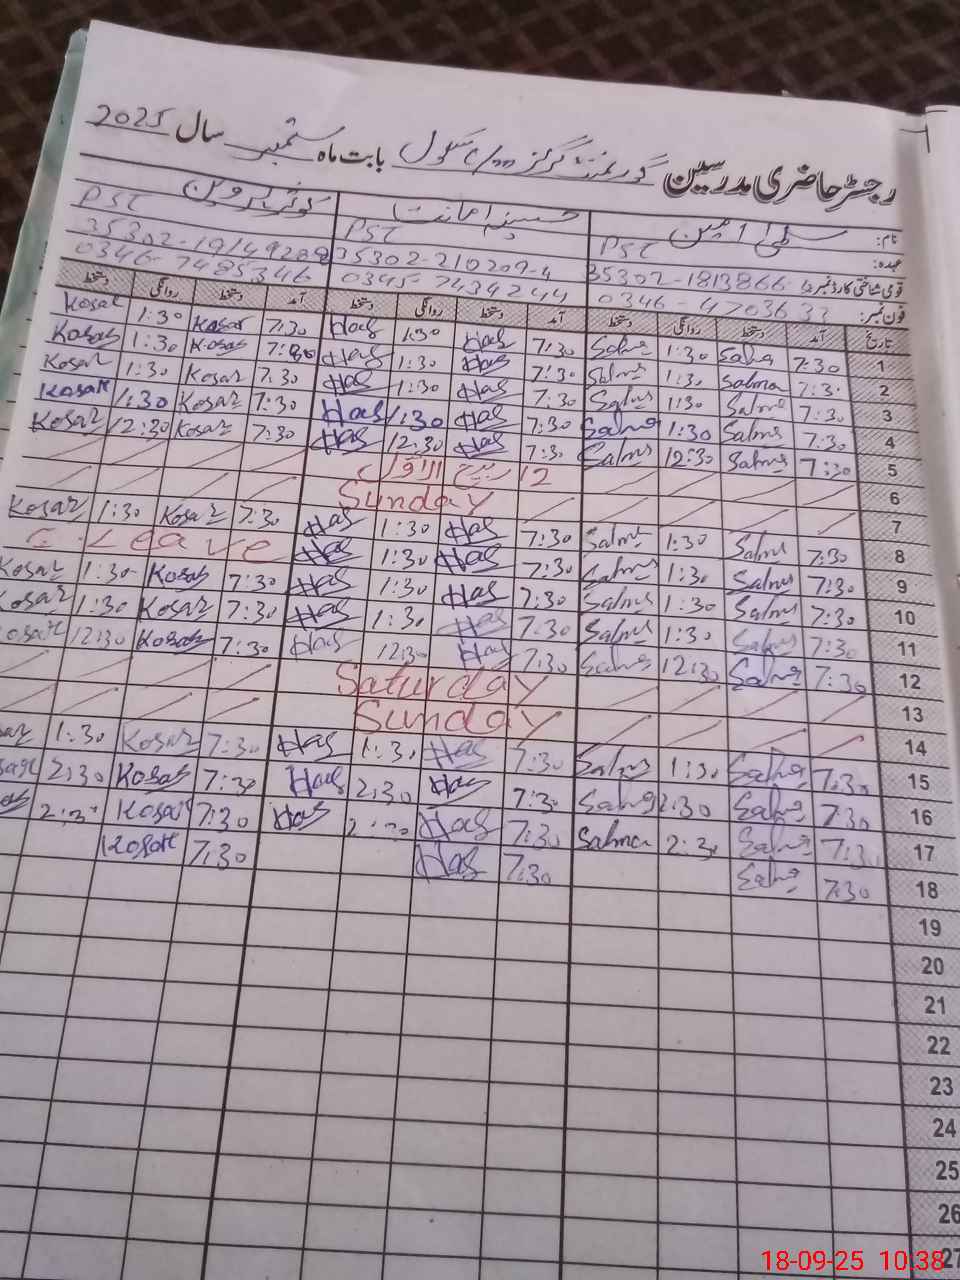 رجسٹر حاضری مدرسین گورنمنٹ گرلز سکول بابت ماہ ستمبر سال 2025
نام: سلمیٰ امین حسینہ امانت کوثر پروین
عہدہ: PST PST PST
قومی شناختی کارڈ نمبر 35302-1813866 35302-210209-4 35302-19149288
فون نمبر: 0346-4703633 0345-7434244 0346-7485346
تاریخ آمد دستخط روانگی دستخط آمد دستخط روانگی دستخط آمد دستخط روانگی دستخط
1 7:30 Salma 1:30 Salma 7:30 Has 1:30 Has 7:30 Kosar 1:30 Kosar
2 7:30 Salma 1:30 Salma 7:30 Has 1:30 Has 7:30 Kosar 1:30 Kosar
3 7:30 Salma 1:30 Salma 7:30 Has 1:30 Has 7:30 Kosar 1:30 Kosar
4 7:30 Salma 1:30 Salma 7:30 Has 1:30 Has 7:30 Kosar 1:30 Kosar
5 7:30 Salma 12:30 Salma 7:30 Has 12:30 Has 7:30 Kosar 12:30 Kosar
6 12 ربیع الاول
7 Sunday
8 7:30 Salma 1:30 Salma 7:30 Has 1:30 Has 7:30 Kosar 1:30 Kosar
9 7:30 Salma 1:30 Salma 7:30 Has 1:30 Has C. Leave
10 7:30 Salma 1:30 Salma 7:30 Has 1:30 Has 7:30 Kosar 1:30 Kosar
11 7:30 Salma 1:30 Salma 7:30 Has 1:30 Has 7:30 Kosar 1:30 Kosar
12 7:30 Salma 12:30 Salma 7:30 Has 12:30 Has 7:30 Kosar 12:30 Kosar
13 Saturday
14 Sunday
15 7:30 Salma 1:30 Salma 7:30 Has 1:30 Has 7:30 Kosar 1:30
16 7:30 Salma 2:30 Salma 7:30 Has 2:30 Has 7:30 Kosar 2:30
17 7:30 Salma 2:30 Salma 7:30 Has 2:30 Has 7:30 Kosar 2:30
18 7:30 Salma 7:30 Has 7:30 Kosar
19
20
21
22
23
24
25
26
27
18-09-25 10:38